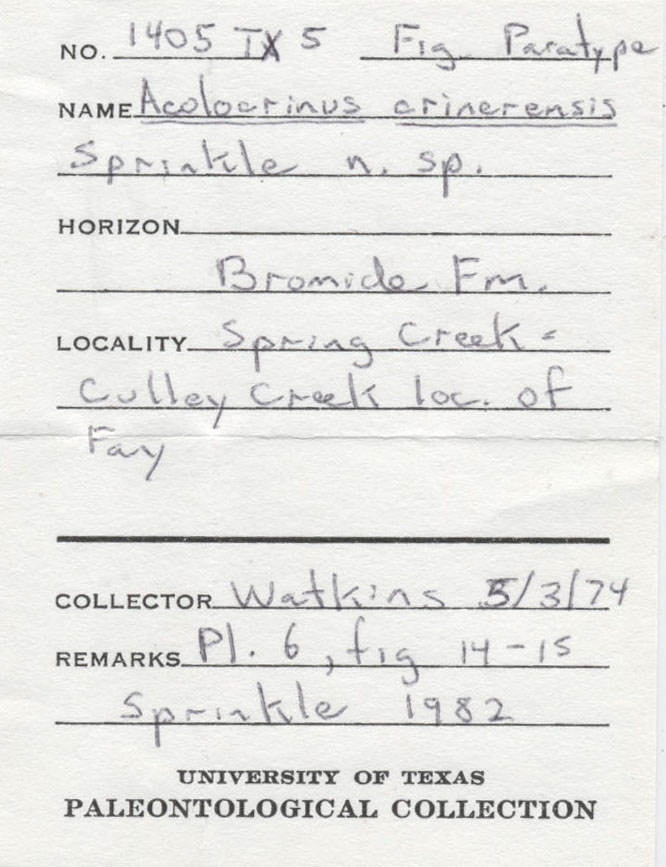 NO. 1405 TX 5 Fig. Paratype
NAME Acolocrinus crinerensis
Sprinkle n. sp.
HORIZON
Bromide Fm.
LOCALITY Spring Creek =
Culley Creek loc. of
Fay
COLLECTOR Watkins 5/3/74
REMARKS Pl. 6, fig 14-15
Sprinkle 1982
UNIVERSITY OF TEXAS
PALEONTOLOGICAL COLLECTION